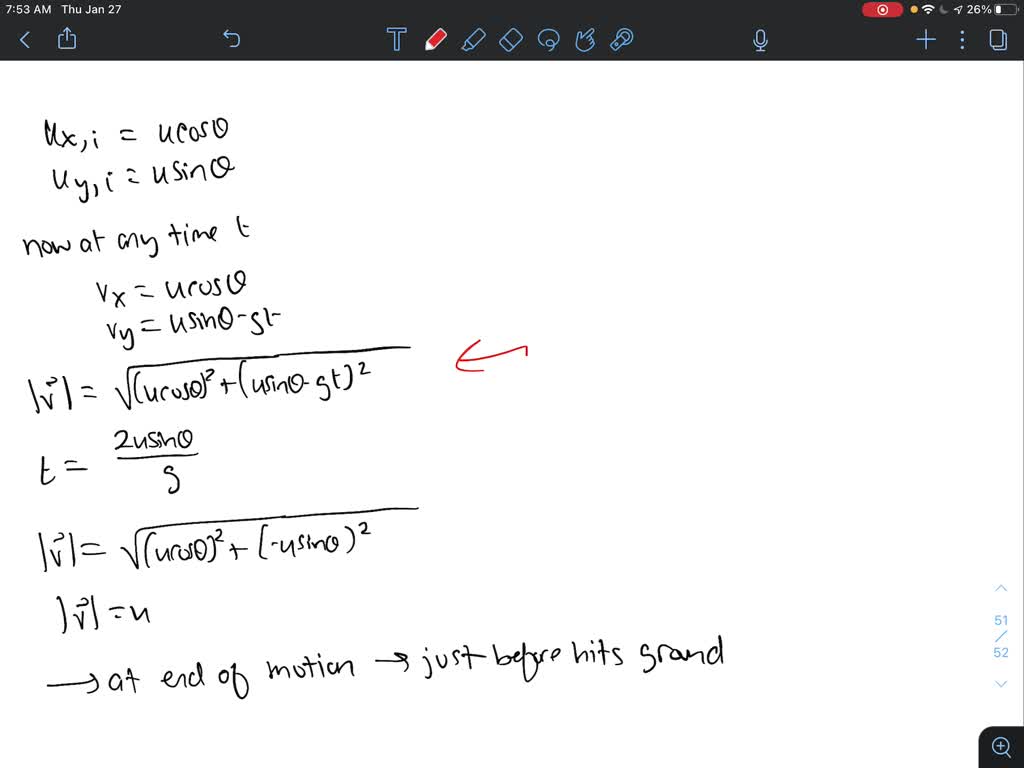 7:53 AM Thu Jan 27
26%
u_x,i = u cosθ
u_y,i = u sinθ
now at any time t
v_x = u cosθ
v_y = u sinθ - gt
|v⃗| = √((u cosθ)² + (u sinθ - gt)²)
t = 2u sinθ / g
|v⃗| = √((u cosθ)² + (-u sinθ)²)
|v⃗| = u
→ at end of motion → just before hits ground
51
/
52